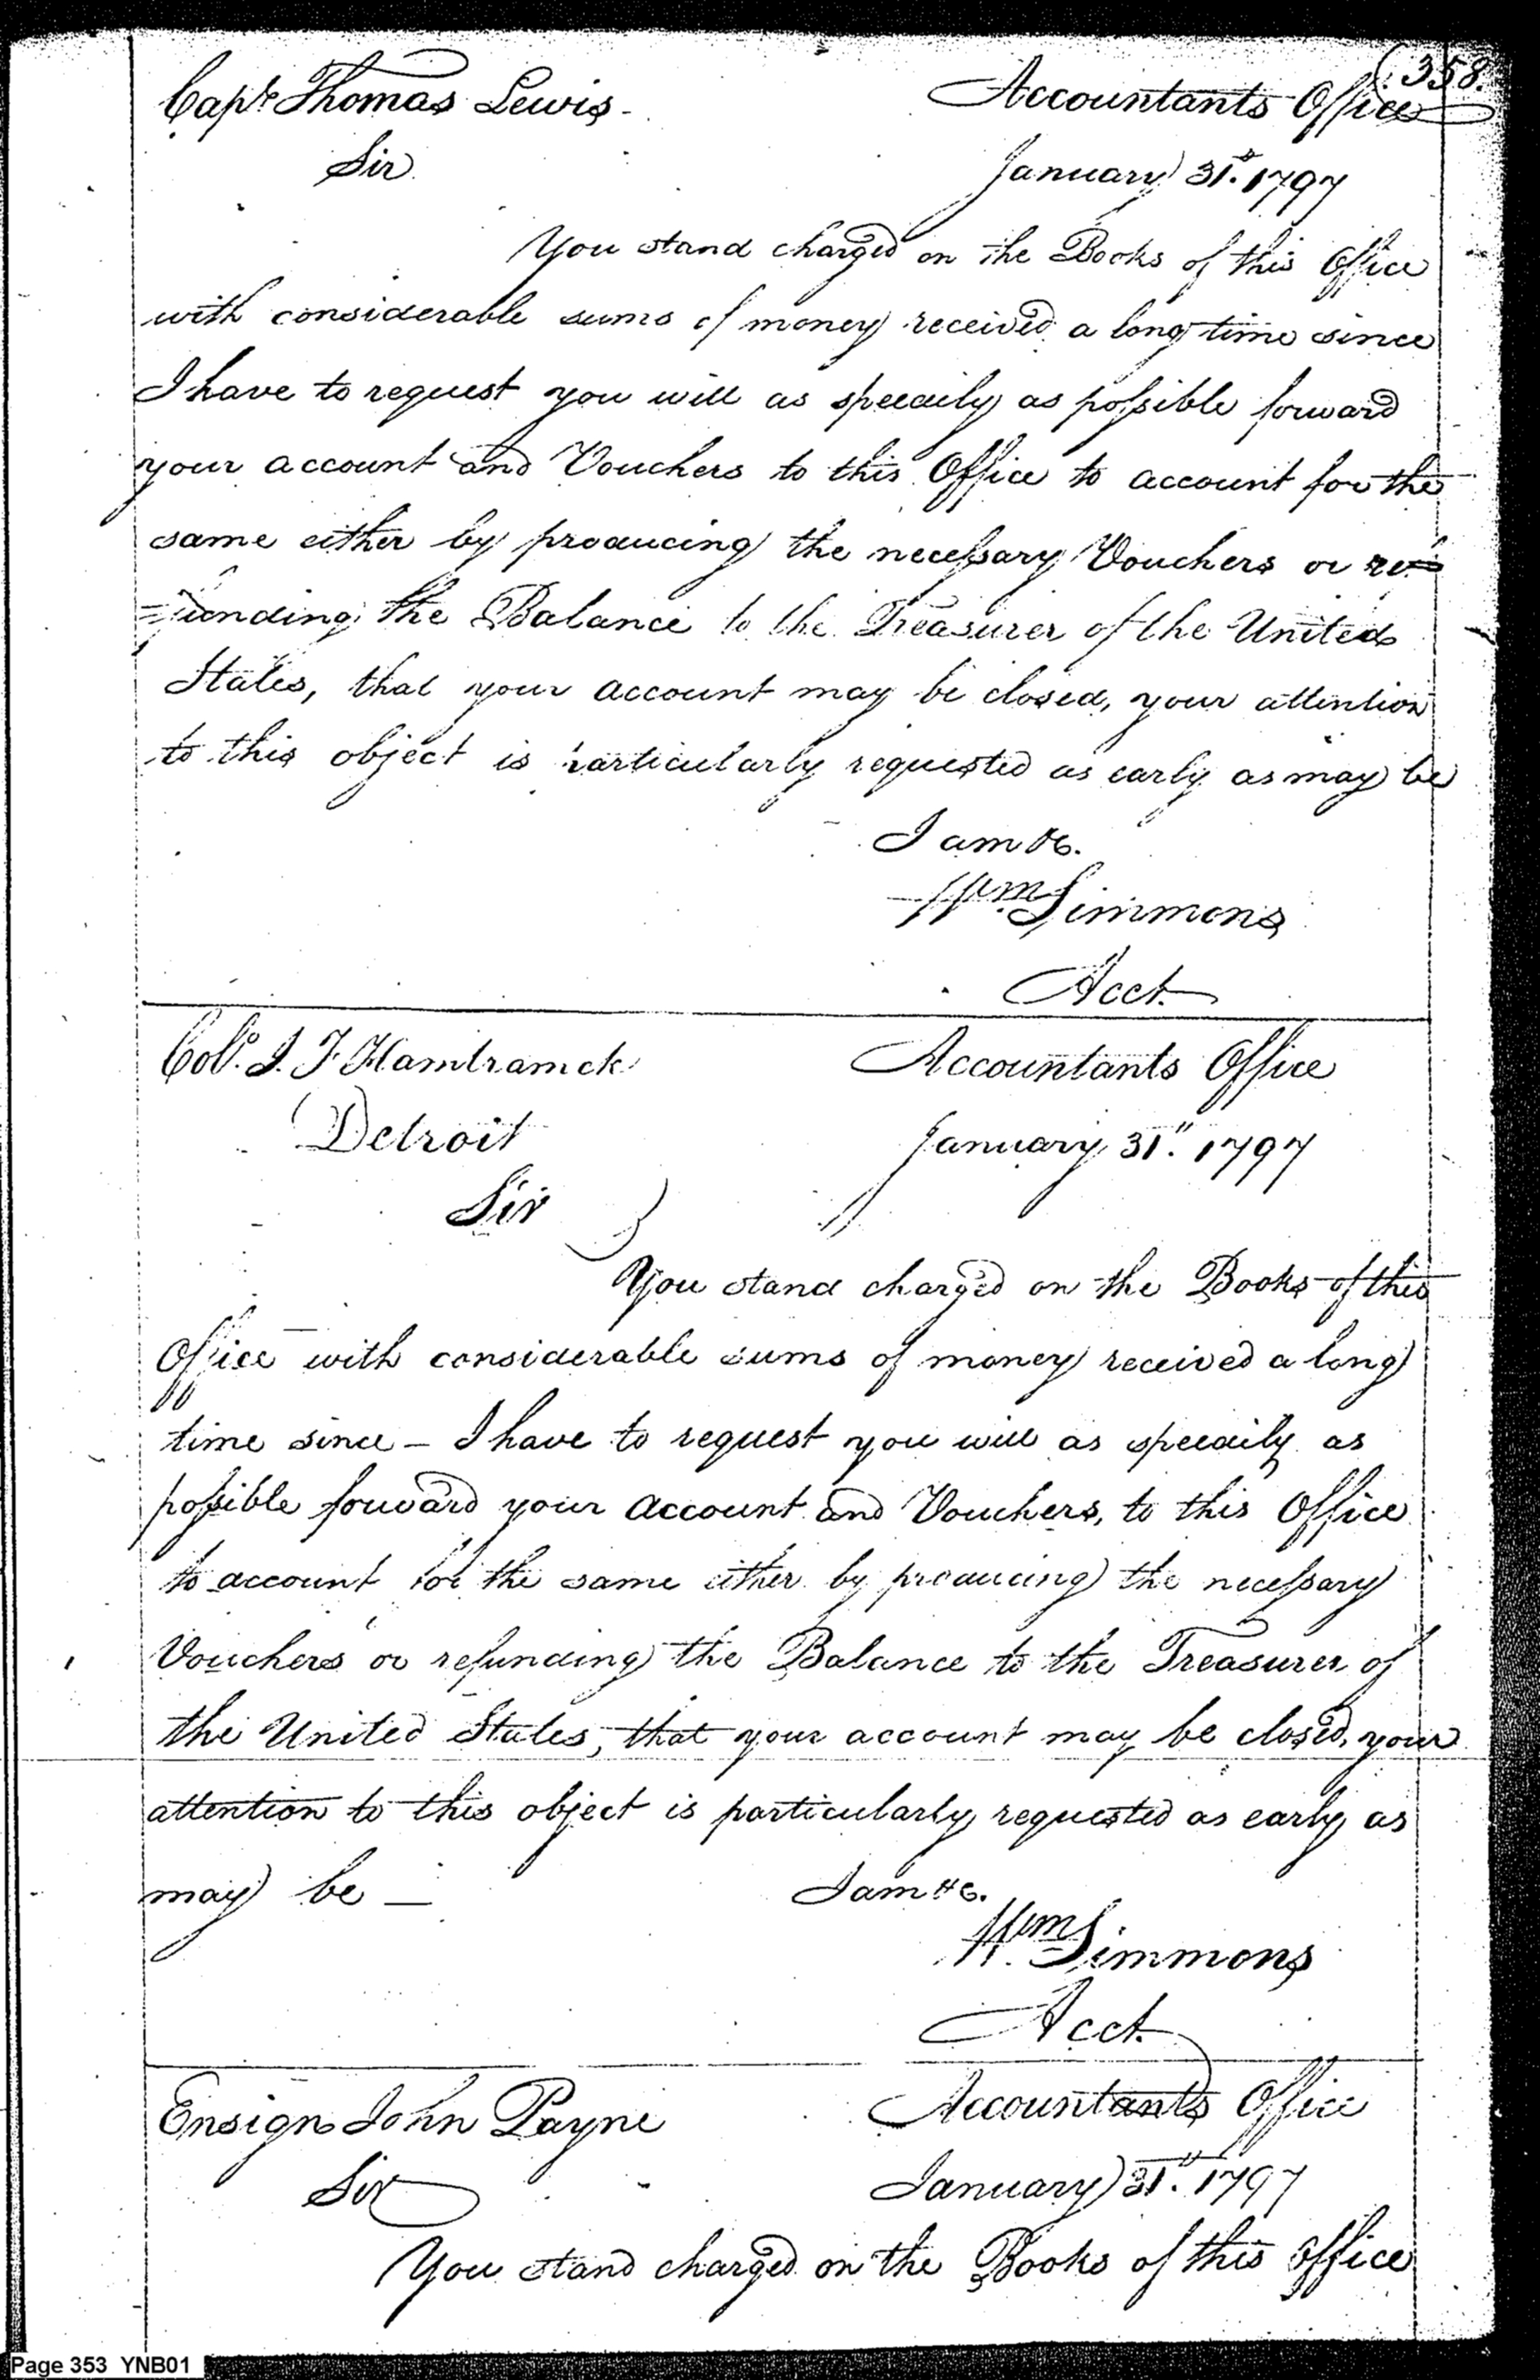 (358.
Capt Thomas Lewis - Accountants Office
Sir January 31st. 1797
You stand charged on the Books of this Office
with considerable sums of money received a long time since
I have to request you will as speedily as possible forward
your account and Vouchers to this Office to account for the
same either by producing the necessary Vouchers or re=
=funding the Balance to the Treasurer of the United
States, that your account may be closed, your attention
to this object is particularly requested as early as may be
I am &c.
Wm Simmons
Acct.
Colo. J. F Hamtramck Accountants Office
Detroit January 31". 1797
Sir
You stand charged on the Books of this
Office with considerable sums of money received a long
time since - I have to request you will as speedily as
possible forward your account and Vouchers, to this Office
to account for the same either by producing the necessary
Vouchers or refunding the Balance to the Treasurer of
the United States, that your account may be closed, your
attention to this object is particularly requested as early as
may be — I am &c.
Wm Simmons
Acct.
Ensign John Payne Accountants Office
Sir January 31". 1797
You stand charged on the Books of this office
Page 353 YNB01